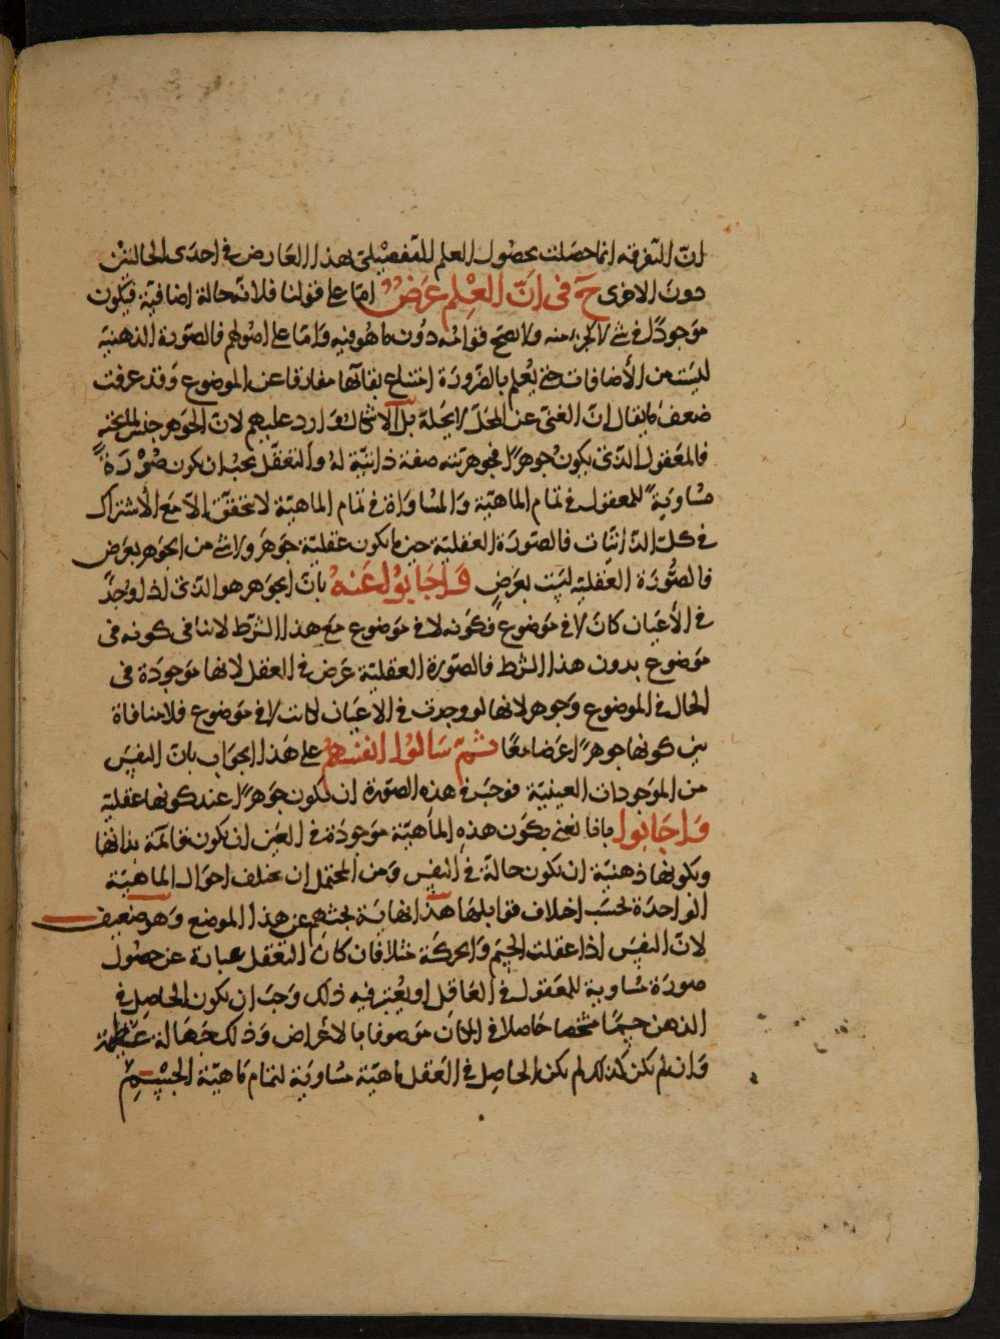 ان التفرقه انما حصلت بحصول العلم التفصيلى بهذا العارض فى احدى الحالتين
دون الاخرى ح فى ان العلم عرض اما على قولنا فلانه حالة اضافية فيكون
موجودا فى شى لا كجزء منه ولا يصح قوامه دون ما هو فيه واما على اصولهم فالصورة الذهنية
ليست من الاضافات حتى يعلم بالضرورة امتناع بقائها مفارقا عن الموضوع وقد عرفت
ضعف ما يقال ان الغنى عن المحل لا يحله بل الاشكال وارد عليهم لان الجوهر جنس لما تحته
فالمعقول الذى يكون جوهرا فجوهريته صفة ذاتية له والتعقل يجب ان يكون صورة
مساوية للمعقول فى تمام الماهية والمساواة فى تمام الماهية لا تتحقق الا مع الاشتراك
فى كل الذاتيات فالصورة العقلية حين ما تكون عقلية جوهر ولا شى من الجوهر بعرض
فالصورة العقلية ليست بعرض واجابوا عنه بان الجوهر هو الذى اذا وجد
فى الاعيان كان لا فى موضوع وكونه لا فى موضوع مع هذا الشرط لا ينافى كونه فى
موضوع بدون هذا الشرط فالصورة العقلية عرض فى العقل لانها موجودة فى
الحال فى الموضوع وجوهر لانها لو وجدت فى الاعيان لكانت لا فى موضوع فلا منافاة
بين كونها جوهرا عرضا معا ثم سالوا انفسهم على هذا الجواب بان النفس
من الموجودات العينية فوجب فى هذه الصورة ان تكون جوهرا عند كونها عقلية
واجابوا بانا نعنى بكون هذه الماهية موجودة فى العين ان تكون قائمة بذاتها
وبكونها ذهنية ان تكون حالة فى النفس ومن المحتمل ان يختلف احوال الماهية
الواحدة بحسب اختلاف قوابلها هذا نهاية بحثهم عن هذا الموضع وهو ضعيف
لان النفس اذا عقلت الجسم والحركة مثلا فان كان التعقل عبارة عن حصول
صورة مساوية للمعقول فى العاقل او يعتبر فيه ذلك وجب ان يكون الحاصل فى
الذهن جسما شخصا حاصلا فى المكان موصوفا بالاعراض وذلك جهالة عظيمة
وان لم تكن كذلك لم يكن الحاصل فى العقل ماهية مساوية لتمام ماهية الجسم